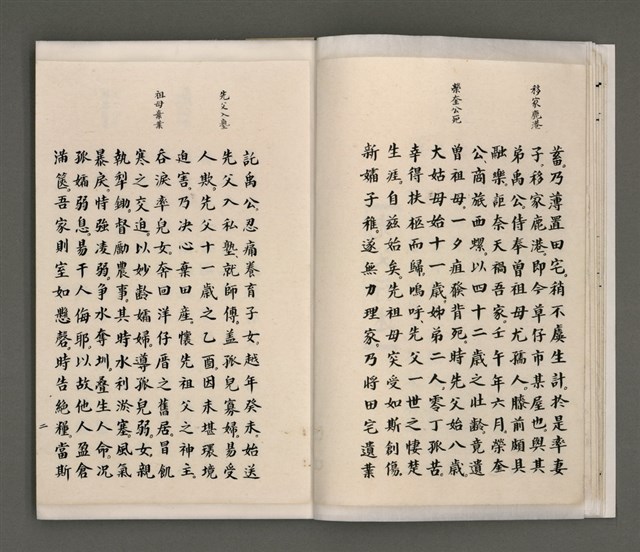 移家鹿港
榮奎公死
蓄。乃薄置田宅。稍不虞生計。於是率妻
子。移家鹿港。即今草仔市某屋也。與其
弟禹公。侍奉曾祖母尤孺人。膝前頗具
融樂。詎奈天禍吾家。壬午年六月。榮奎
公。商旅西螺。以四十二歲之壯齡。竟遺
曾祖母。一夕疽發背死。時先父始八歲。
大姑母始十一歲。姊弟二人。零丁孤苦。
幸得扶柩而歸。嗚呼。先父一世之悽楚
生涯。自茲始矣。先祖母突受如斯創傷。
新孀子稚。遂無力理家。乃將田宅遺業
先父入塾
祖母棄業
託禹公。忍痛養育子女。越年癸未。始送
先父入私塾。就師傅。蓋孤兒寡婦。易受
人欺。先父十一歲之乙酉。因未堪環境
迫害。乃決心棄田產。懷先祖父之神主。
吞淚率兒女。奔回洋仔厝之舊居。冒飢
寒之交迫。以妙齡孀婦。導孤兒弱女。親
執犁鋤。督勵農事。其時水利淤塞。風氣
暴戾。恃強凌弱。爭水奪圳。疊生人命。況
孤孀弱息。易干人侮耶。以故他人盈倉
滿篋。吾家則室如懸磬。時告絕糧。當斯
二